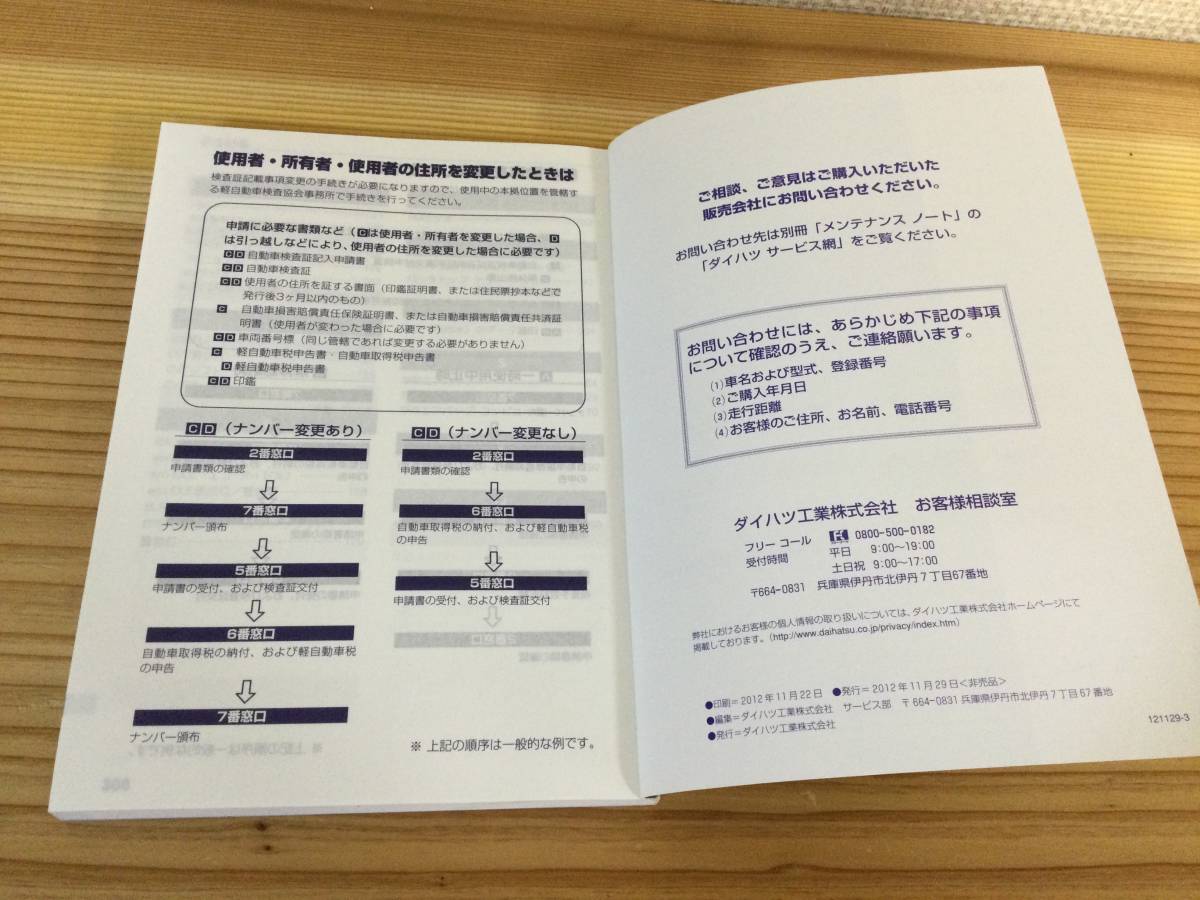 使用者・所有者・使用者の住所を変更したときは
検査証記載事項変更の手続きが必要になりますので、使用中の本拠位置を管轄す
る軽自動車検査協会事務所で手続きを行ってください。
申請に必要な書類など（Cは使用者・所有者を変更した場合、D
は引っ越しなどにより、使用者の住所を変更した場合に必要です）
C D 自動車検査証記入申請書
C D 自動車検査証
C D 使用者の住所を証する書面（印鑑証明書、または住民票抄本などで
発行後3ヶ月以内のもの）
C 自動車損害賠償責任保険証明書、または自動車損害賠償責任共済証
明書（使用者が変わった場合に必要です）
C D 車両番号標（同じ管轄であれば変更する必要がありません）
C 軽自動車税申告書・自動車取得税申告書
D 軽自動車税申告書
C D 印鑑
C D （ナンバー変更あり）
2番窓口
申請書類の確認
7番窓口
ナンバー頒布
5番窓口
申請書の受付、および検査証交付
6番窓口
自動車取得税の納付、および軽自動車税
の申告
7番窓口
ナンバー頒布
C D （ナンバー変更なし）
2番窓口
申請書類の確認
6番窓口
自動車取得税の納付、および軽自動車税
の申告
5番窓口
申請書の受付、および検査証交付
※ 上記の順序は一般的な例です。
ご相談、ご意見はご購入いただいた
販売会社にお問い合わせください。
お問い合わせ先は別冊「メンテナンス ノート」の
「ダイハツ サービス網」をご覧ください。
お問い合わせには、あらかじめ下記の事項
について確認のうえ、ご連絡願います。
(1)車名および型式、登録番号
(2)ご購入年月日
(3)走行距離
(4)お客様のご住所、お名前、電話番号
ダイハツ工業株式会社 お客様相談室
フリー コール 0800-500-0182
受付時間 平日 9:00〜19:00
土日祝 9:00〜17:00
〒664-0831 兵庫県伊丹市北伊丹7丁目67番地
弊社におけるお客様の個人情報の取り扱いについては、ダイハツ工業株式会社ホームページにて
掲載しております。（http://www.daihatsu.co.jp/privacy/index.htm）
●印刷＝2012年11月22日 ●発行＝2012年11月29日<非売品>
●編集＝ダイハツ工業株式会社 サービス部 〒664-0831 兵庫県伊丹市北伊丹7丁目67番地
●発行＝ダイハツ工業株式会社
121129-3